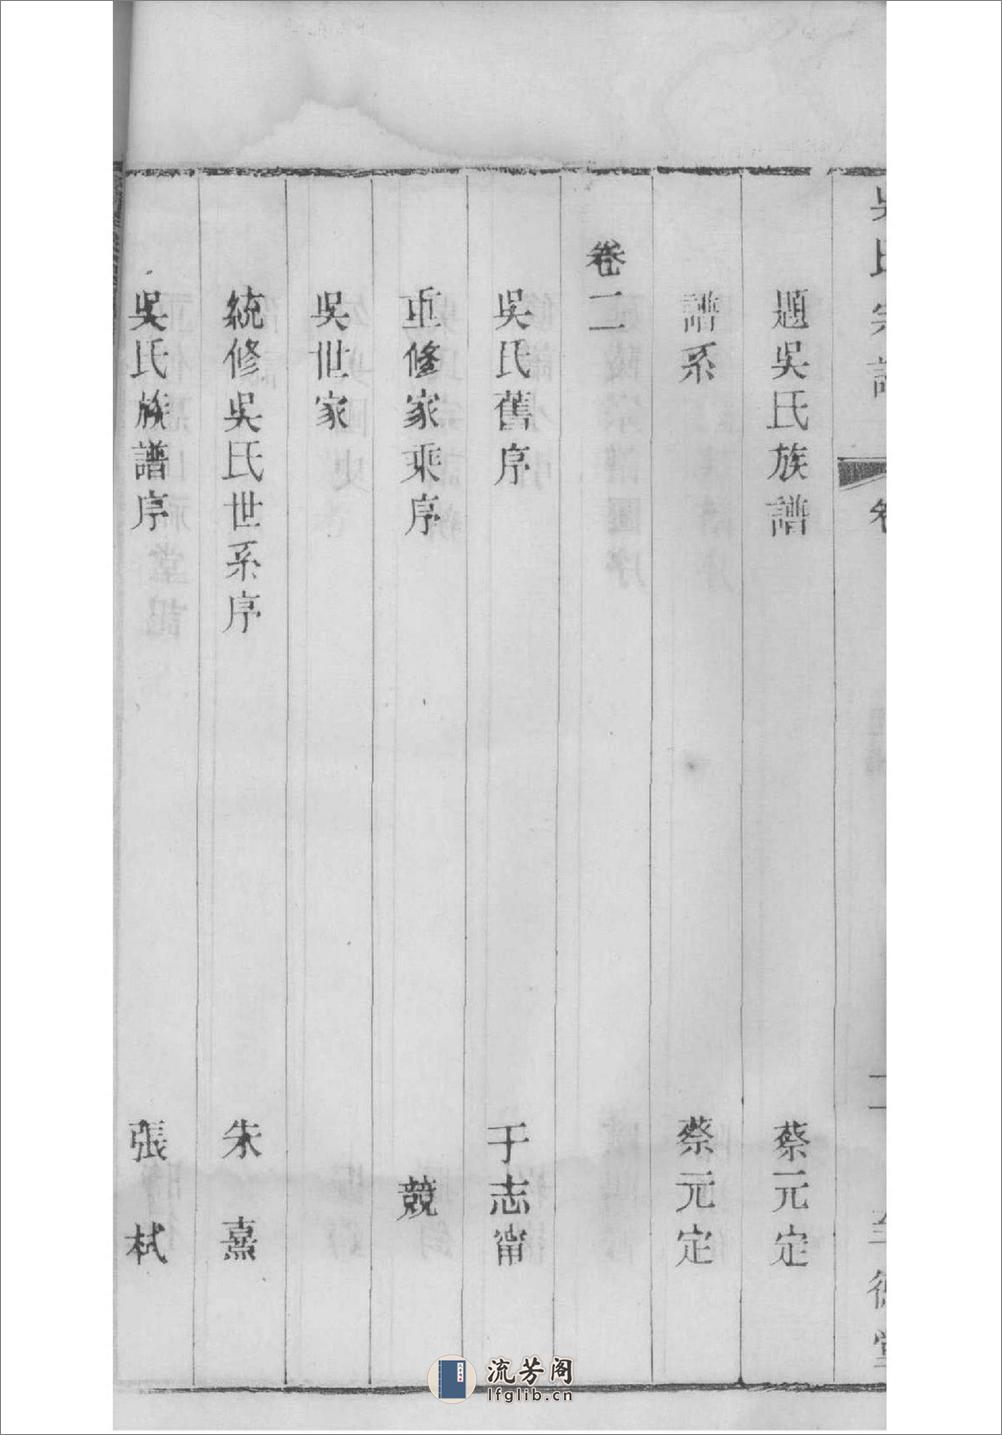 吳氏宗譜 卷 二 至德堂
題吳氏族譜 蔡元定
譜系 蔡元定
卷二
吳氏舊序 于志甯
重修家乘序 競
吳世家
統修吳氏世系序 朱熹
吳氏族譜序 張栻
流芳阁
lfglib.cn